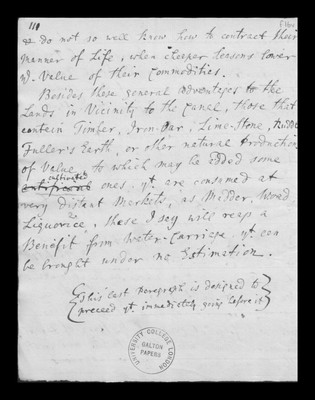 110
& do not so well know how to contract their
manner of Life, when cheaper Seasons lower
yᵉ. Value of their Commodities.
Besides these general advantages to the
Lands in Vicinity to the Canal, those that
contain Timber, Iron-Oar, Lime-Stone,
Fuller's Earth, or other natural Productions
of Value, to which may be added some
cultivated
ones, yᵗ. are consumed at
very distant Markets, as Madder, Woad
Liquorice, &c these I say will reap a
Benefit from Water-Carriage, yᵗ. can
be brought under no Estimation.
This last paragraph is designed to
preceed yᵗ. immediately going before it
UNIVERSITY COLLEGE LONDON
GALTON
PAPERS